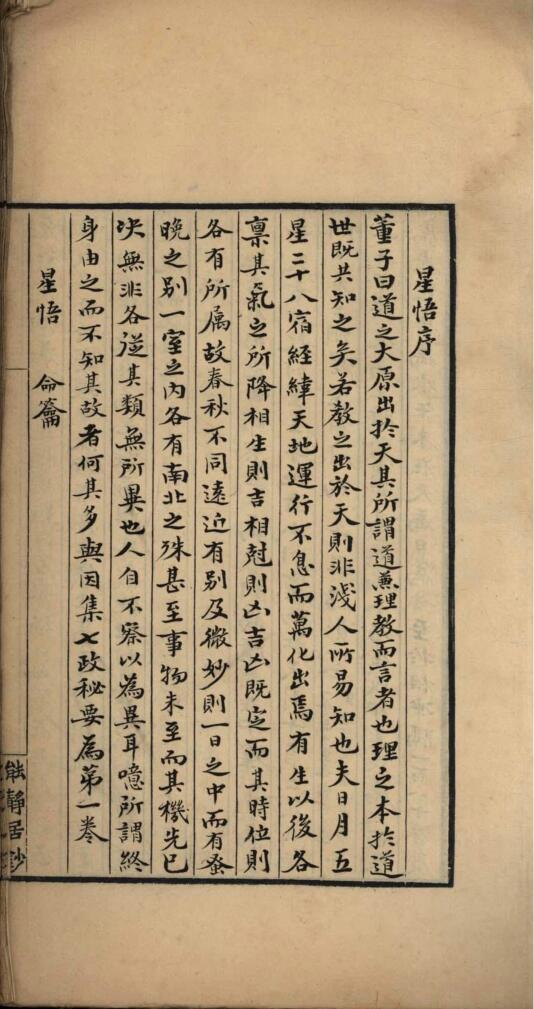 星悟序
董子曰道之大原出於天其所謂道蕪理教而言者也理之本於道
世既共知之矣若教之出於天則非淺人所易知也夫日月五
星二十八宿經緯天地運行不息而萬化出焉有生以後各
稟其氣之所降相生則吉相尅則凶吉凶既定而其時位則
各有所屬故春秋不同遠近有別及微妙則一日之中而有蚤
晚之別一室之內各有南北之殊甚至事物未至而其機先已
决無非各從其類無所異也人自不察以為異耳噫所謂終
身由之而不知其故者何其多與因集七政秘要為第一卷
星悟 命籥
能靜居鈔